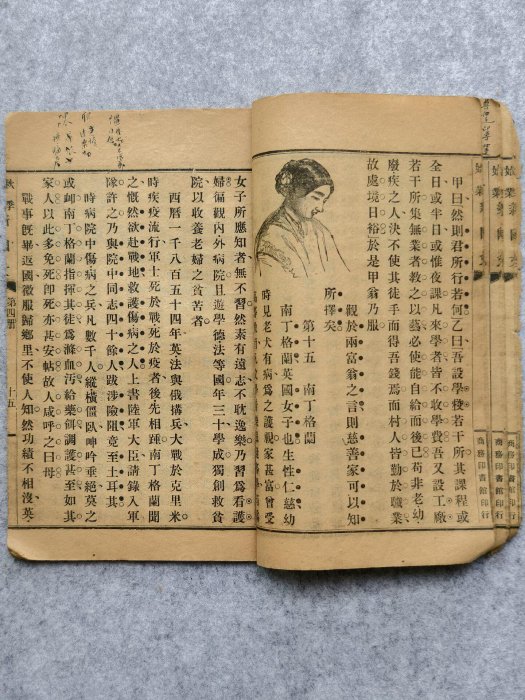 甲曰然則君所行若何乙曰吾設學校若干所其課程或
全日或半日或惟夜課凡來學者皆不收學費吾又設工廠
若干所集無業者教之以藝必使能自給而後已苟非老幼
廢疾之人決不使其徒手而得吾錢焉而村人皆勤於職業
故處境日裕於是甲翁乃服
觀於兩富翁之言則慈善家可以知
所擇矣
第十五 南丁格蘭
南丁格蘭英國女子也生性仁慈幼
時見老犬有病爲之護視家甚富曾受
女子所應知者無不習然素有遠志不耽逸樂乃習爲看護
婦徧觀內外病院且遊學德法等國年三十學成獨創救貧
院以收養老婦之貧苦者
西曆一千八百五十四年英法與俄搆兵大戰於克里米
時疾疫流行軍士死於戰死於疫者後先相踵南丁格蘭聞
之慨然欲赴戰地救護傷病之人上書陸軍大臣請錄入軍
隊許之乃與院中同志四十餘人跋涉險阻竟至土耳其
時病院中傷病之兵凡數千人縱橫僵臥呻吟垂絕莫之
或卹南丁格蘭指揮其徒爲滌血污給藥餌調護甚至如其
家人以此多免死卽死亦甚安帖故人咸呼之曰母
戰事旣畢返國微服歸鄉里不使人知然功績不相沒英
第四册
十五
商務印書館印行
商務印書館印行
商務印書館印行